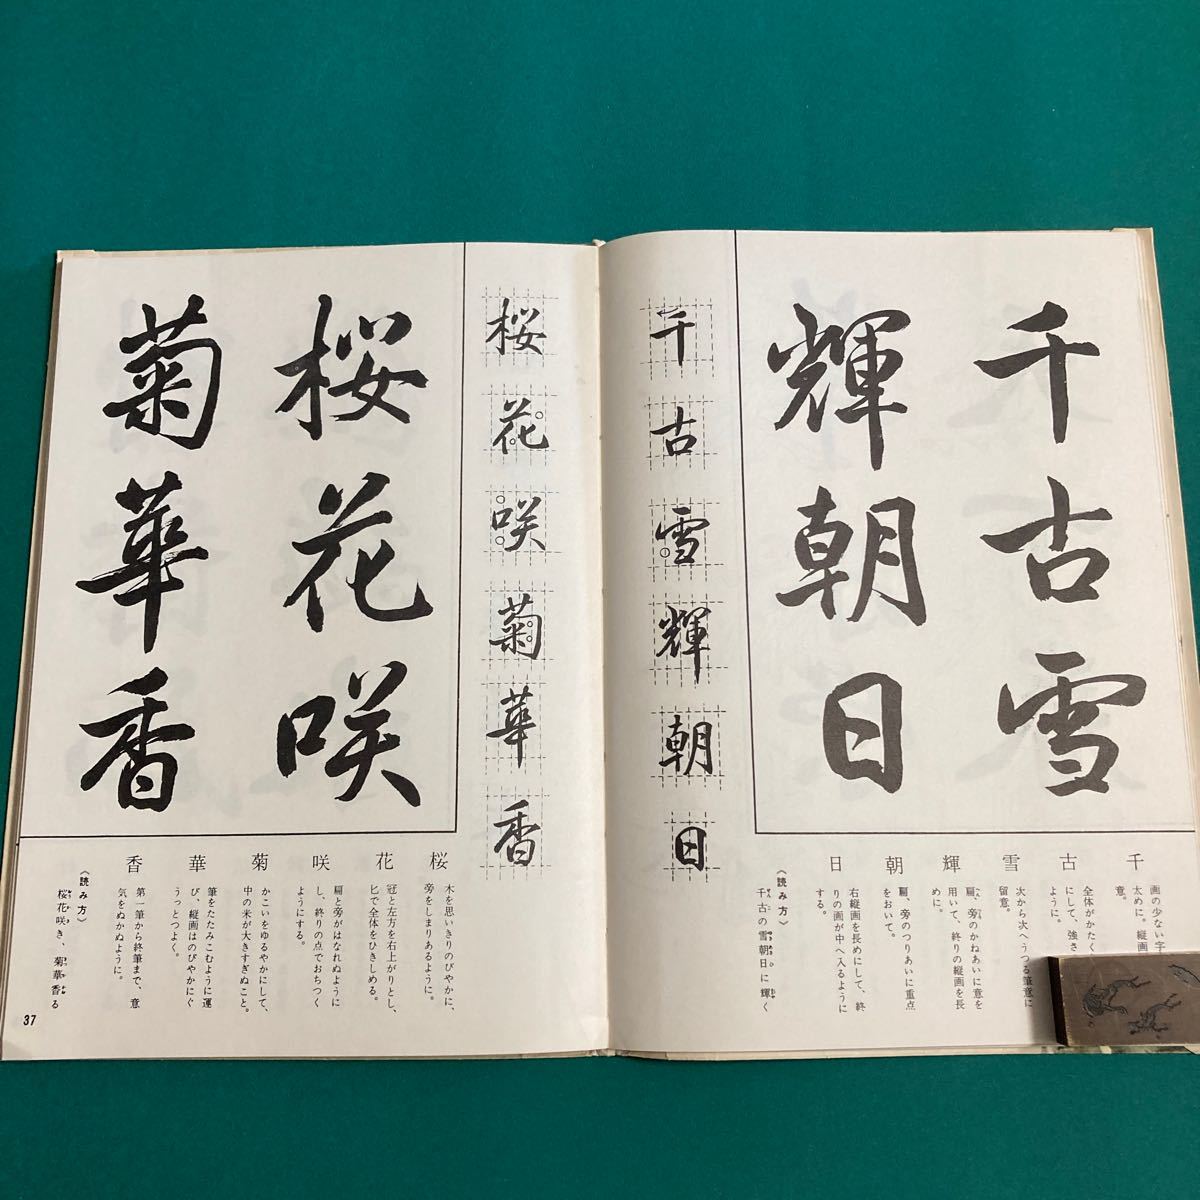 千古雪
輝朝日
千
画の少ない字
太めに。縦画
意。
古
全体がかたく
にして、強さ
ように。
雪
次から次へうつる筆意に
留意。
輝
扁、旁のかねあいに意を
用いて、終りの縦画を長
めに。
朝
扁、旁のつりあいに重点
をおいて。
日
右縦画を長めにして、終
りの画が中へ入るように
する。
《読み方》
千古の雪朝日に輝く
千古雪輝朝日
桜花咲菊華香
桜花咲
菊華香
桜
木を思いきりのびやかに、
旁をしまりあるように。
花
冠と左方を右上がりとし、
匕で全体をひきしめる。
咲
扁と旁がはなれぬように
し、終りの点でおちつく
ようにする。
菊
かこいをゆるやかにして、
中の米が大きすぎぬこと。
華
筆をたたみこむように運
び、縦画はのびやかにぐ
うっとつよく。
香
第一筆から終筆まで、意
気をぬかぬように。
《読み方》
桜花咲き、菊華香る
37